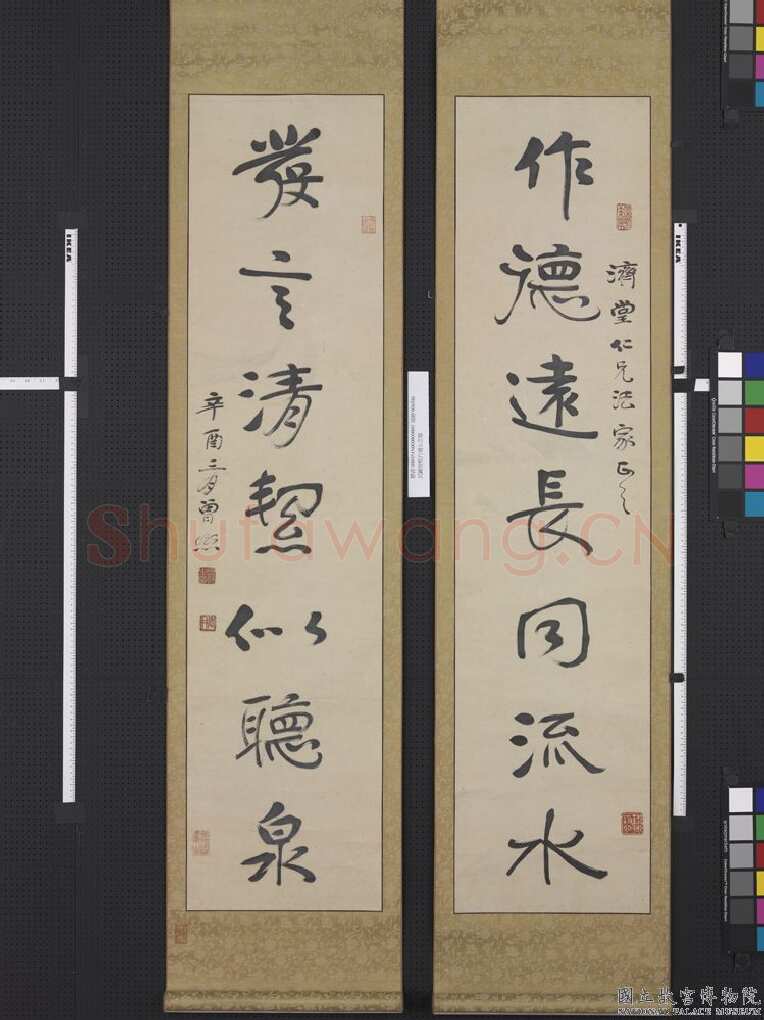 作德遠長同流水
濟堂仁兄法家正之
發言清絜似聽泉
辛酉三月曾熙
IKEA
IKEA
Shufawang.CN
國立故宮博物院
NATIONAL PALACE MUSEUM